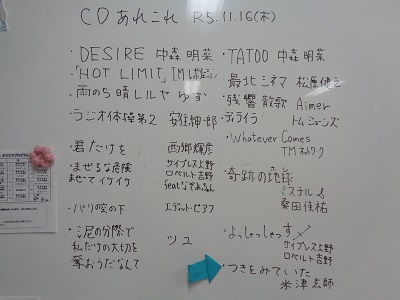 CDあれこれ R5.11.16(木)
・DESIRE 中森明菜
・「HOT LIMIT」TM.レボリューション
・雨のち晴レルヤ ゆず
・ラジオ体操第2 安住紳一郎
・君だけを 西郷輝彦
・まぜるな危険 サイプレス上野
まぜてイケイケ ロベルト吉野
feat.なぞ
・パリの空の下 エディット・ピアフ
・泥の分際で
私だけの大切を
奪おうだなんて ツユ
・TATOO 中森明菜
・最北シネマ 松原健之
・残響散歌 Aimer
・ディライラ トムジョーンズ
・Whatever Comes
TMネットワーク
・奇跡の地球
ミスチル &
桑田佳祐
・よっしゃっしゃっす〆
サイプレス上野
ロベルト吉野
・つきをみていた
米津玄師